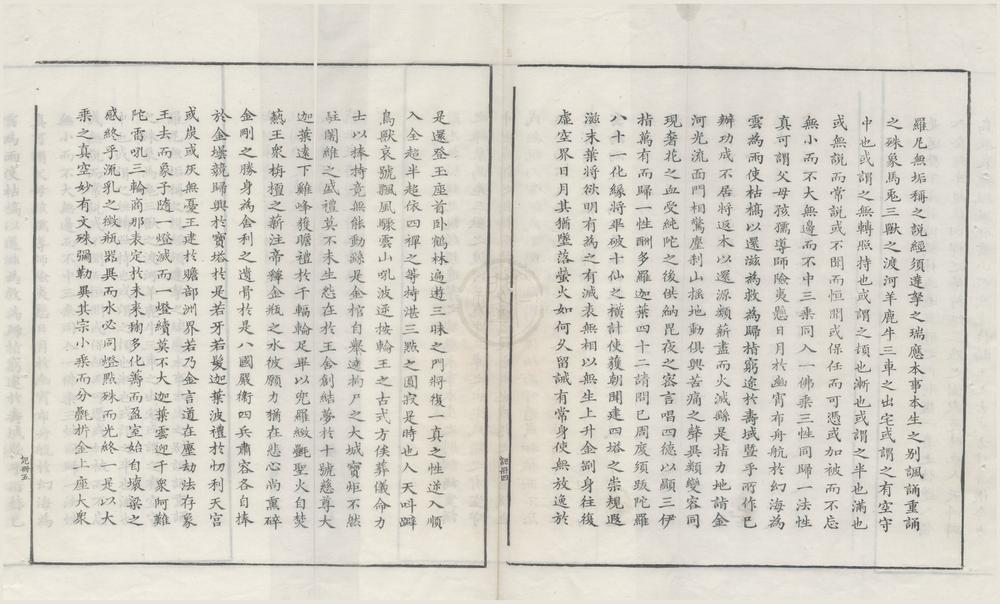 羅尼無垢稱之說經須達拏之瑞應本事本生之别諷誦重誦
之殊象馬兎三獸之渡河羊鹿牛三車之出宅或謂之有空守
中也或謂之無轉照持也或謂之頓也漸也或謂之半也滿也
或無說而常說或不聞而恒聞或保任而可憑或加被而不忘
無小而不大無邊而不中三乘同入一佛乘三性同歸一法性
真可謂父母孩孺導師險夷懸日月於幽宵布舟航於幻海為
雲為雨使枯槁以還滋為救為歸指窮途於壽域暨乎所作已
辦功成不居將返本以還源類薪盡而火滅繇是指力地詣金
河光流面門相驚塵刹山搖地動俱興苦痛之聲異類變容同
現奢花之血受純陀之後供納毘夜之密言唱四德以顯三伊
指萬有而歸一性酬多羅迦葉四十二請問已周度須跋陀羅
八十一化緣將畢破十仙之橫計使獲朝聞建四塔之崇規遐
滋末葉將欲明有為之有滅表無相以無生上升金剛身往復
虛空界日月其猶墜落螢火如何久留誡有常身使無放逸於
記冊四
是還登玉座首卧鶴林遍遊三昧之門將復一真之性逆入順
入全超半超依四禪之等持湛三點之圓寂是時也人天叫躃
鳥獸哀號飄風驟雲山吼波逆按輪王之古式方俟葬儀命力
士以捧持竟無能動繇是金棺自舉遶拘尸之大城寶炬不然
駐闍維之盛禮莫不未生怨在於王舍創結夢於十號慈尊大
迦葉遠下雞峰獲瞻禮於千輻輪足畢以兜羅緻㲲聖火自焚
爇王衆栴檀之薪注帝釋金瓶之水彼願力猶在悲心尚熏碎
金剛之勝身為舍利之遺骨於是八國嚴衛四兵肅容各自捧
於金壜競歸興於寶塔於是若牙若髮迦葉波禮於忉利天宮
或炭或灰無憂王建於贍部洲界若乃金言道在塵劫法存象
王去而象子隨一燈滅而一燈續莫不大迦葉雲迎千衆阿難
陀雷吼三輪商那表定於未來毱多化籌而盈室始自壞梁之
感終乎流乳之徵瓶器異而水必同燈點殊而光終一是以大
乘之真空妙有文殊彌勒異其宗小乘而分㲲折金上座大衆
記冊五